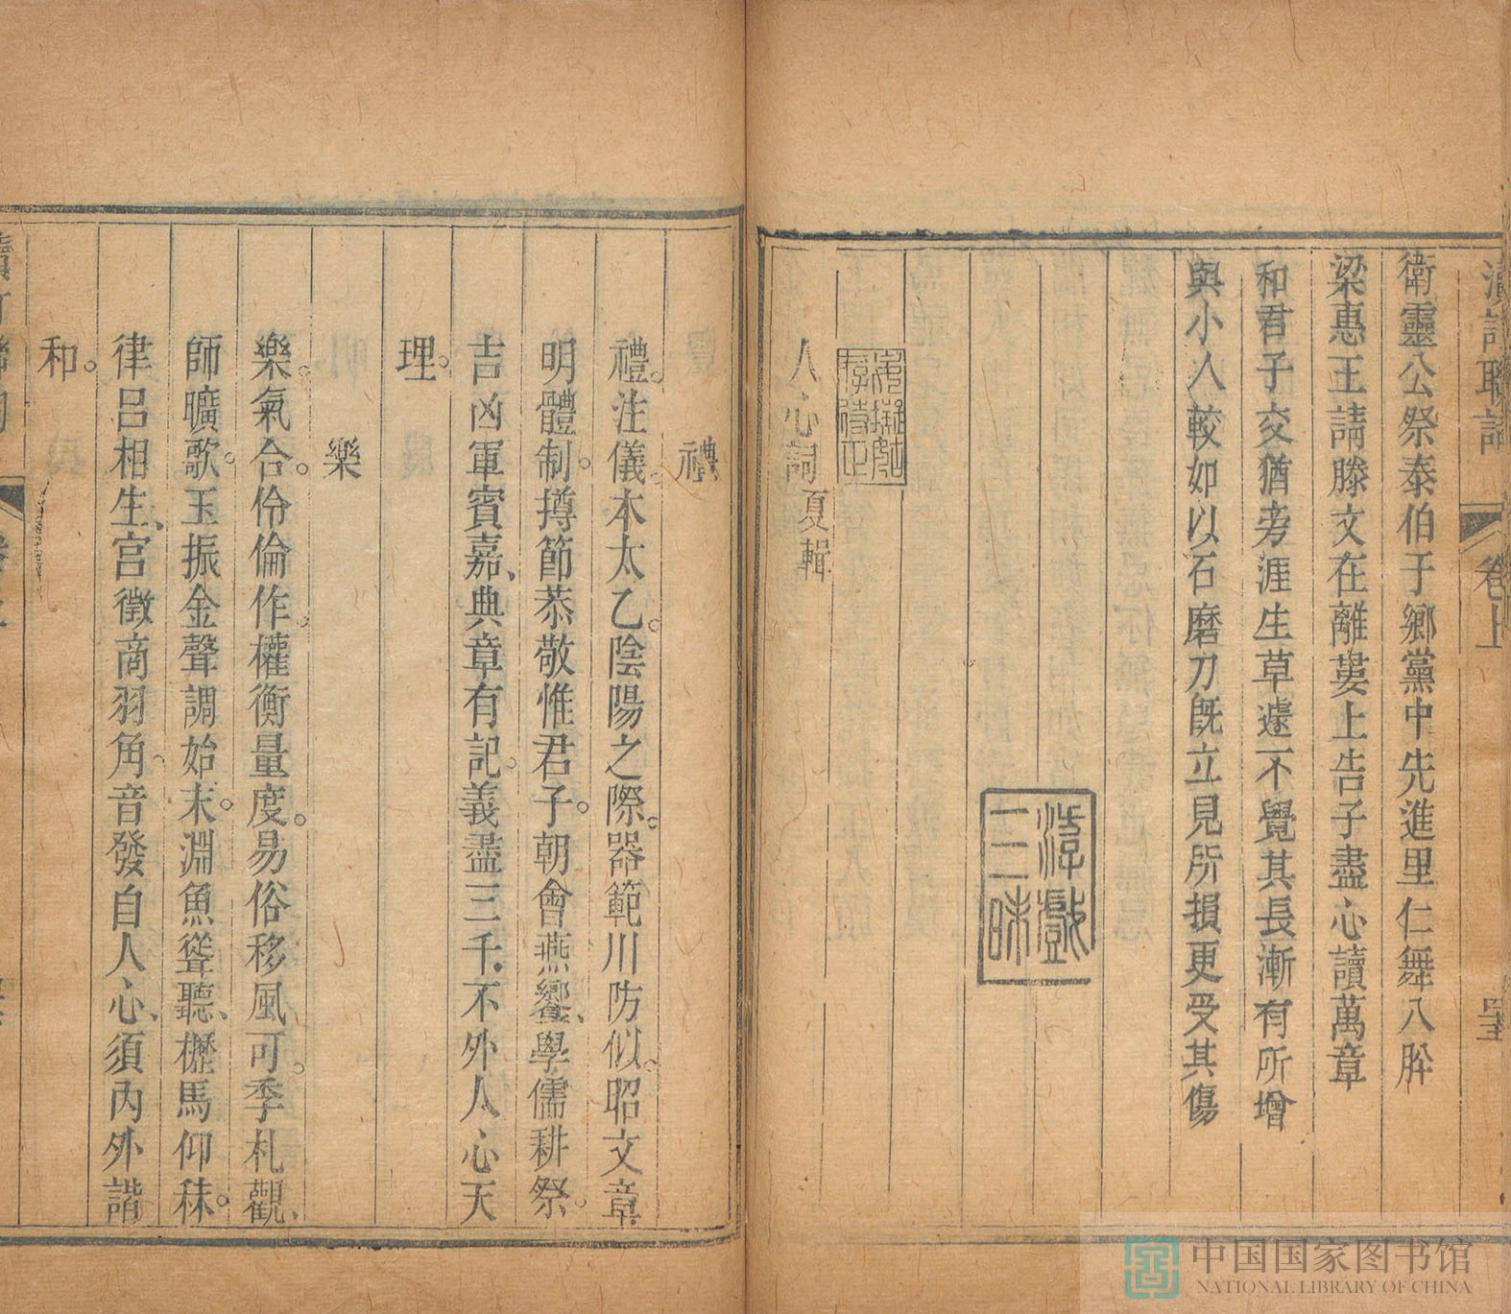 衛靈公祭泰伯于鄉黨中先進里仁舞八
梁惠王請滕文在離婁上告子盡心讀萬章
和君子交猶旁涯生草遽不覺其長漸有所增
與小人較如以石磨刀既立見所損更受其傷
游戲
三昧
人心詞夏輯
卷上
禮
禮。注儀。本太乙。陰陽之際。器範川防似。昭文章
明體制。撙節恭敬惟君子。朝會燕饗、學儒耕祭。
吉凶軍賓嘉、典章有記。義盡三千、不外人心天
理。
樂
樂。氣合。伶倫作。權衡量度。易俗移風可。季札觀、
師曠歌。玉振金聲調始末。淵魚聳聽、櫪馬仰秣。
律呂相生、宮徵商羽角。音發自人心、須內外諧
和。
中国国家图书馆
NATIONAL LIBRARY OF CHINA